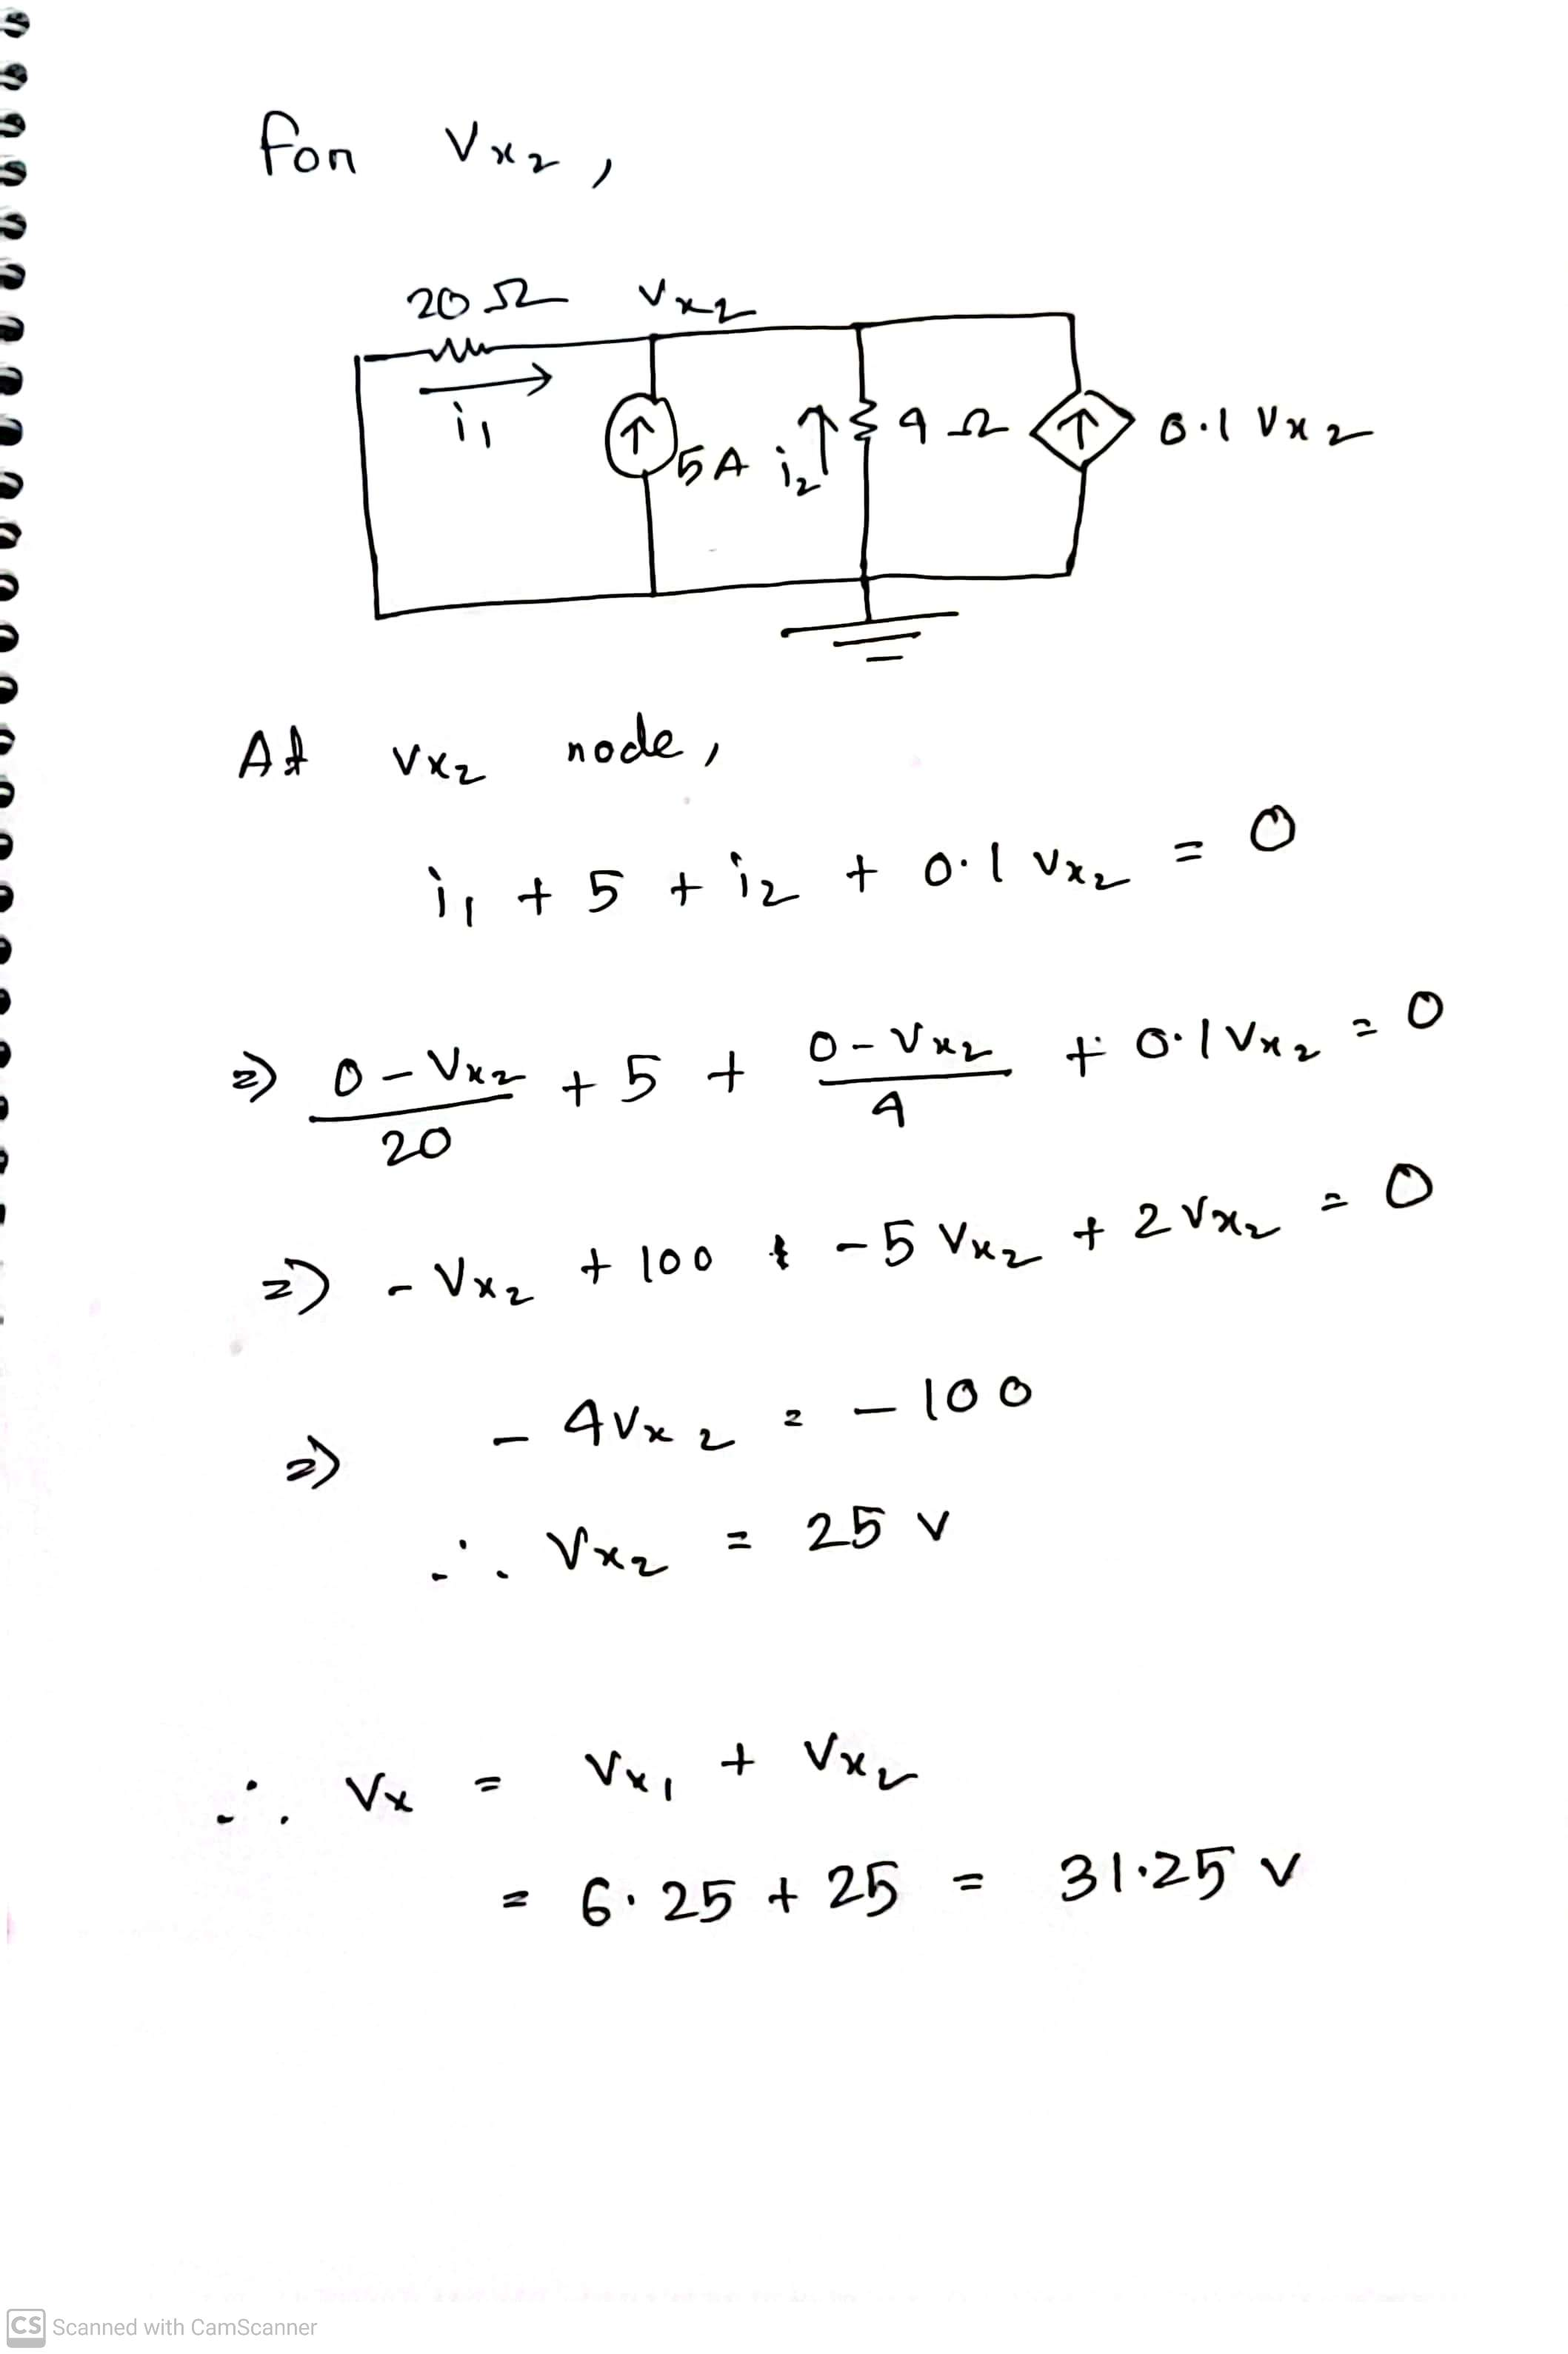 For Vx2,
20Ω Vx2
i1 5A i2 4Ω 0.1 Vx2
At Vx2 node,
i1 + 5 + i2 + 0.1 Vx2 = 0
⇒ (0 - Vx2)/20 + 5 + (0 - Vx2)/4 + 0.1 Vx2 = 0
⇒ - Vx2 + 100 - 5 Vx2 + 2 Vx2 = 0
⇒ - 4Vx2 = - 100
∴ Vx2 = 25 V
∴ Vx = Vx1 + Vx2
= 6.25 + 25 = 31.25 V
CS Scanned with CamScanner